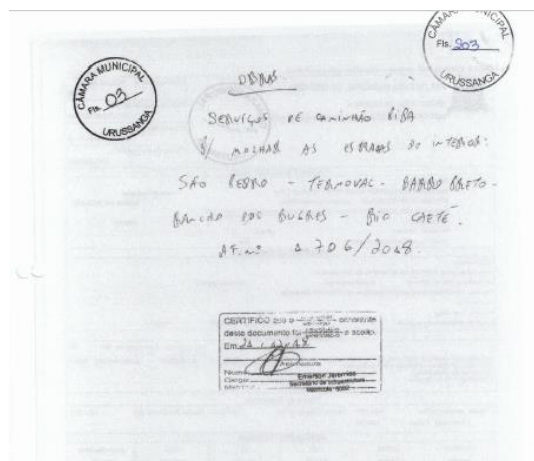 CÂMARA MUNICIPAL
Fls. 203
URUSSANGA
CÂMARA MUNICIPAL
Fls. 03
URUSSANGA
OBRAS
SERVIÇOS DE CAMINHÃO PIPA
P/ MOLHAR AS ESTRADAS DO INTERIOR:
SÃO PEDRO - TERMOVAL - BARRO PRETO -
RANCHO DOS BUGRES - RIO CAETÉ.
AF. nº 1706/2018.
CERTIFICO que o constante
deste documento foi e aceito.
Em
Assinatura
Nome
Cargo
Emerson Jeremias
Secretário de Infraestrutura
Matrícula